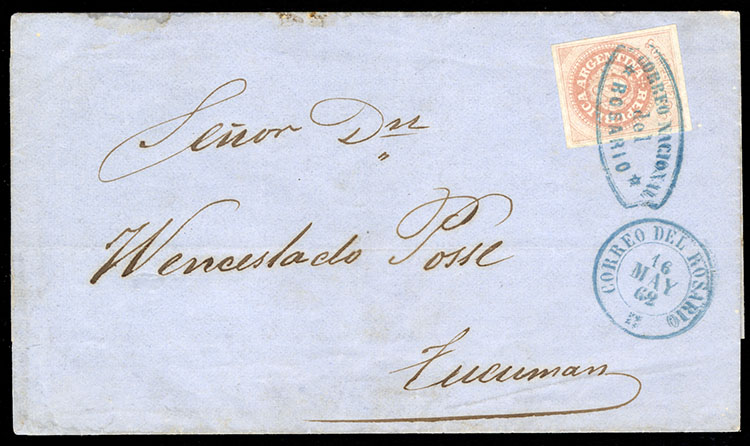 REPUBLICA ARGENTINA
CORREO NACIONAL
del
* ROSARIO *
Señor Dn
Wenceslado Posse
Tucuman
CORREO DEL ROSARIO
16
MAY
62